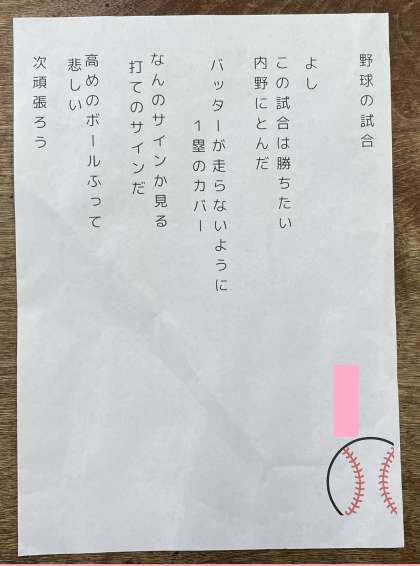 野球の試合
よし
この試合は勝ちたい
内野にとんだ
バッターが走らないように
1塁のカバー
なんのサインか見る
打てのサインだ
高めのボールふって
悲しい
次頑張ろう